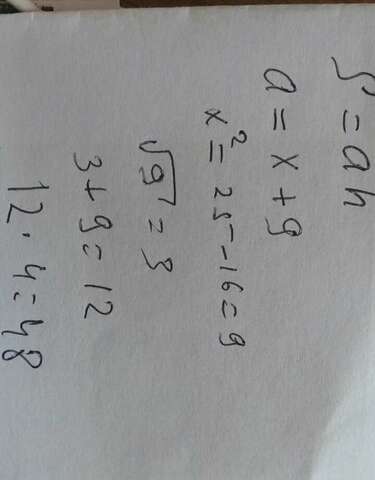 S = ah
a = x + 9
x² = 25 - 16 = 9
√9 = 3
3 + 9 = 12
12 · 4 = 48